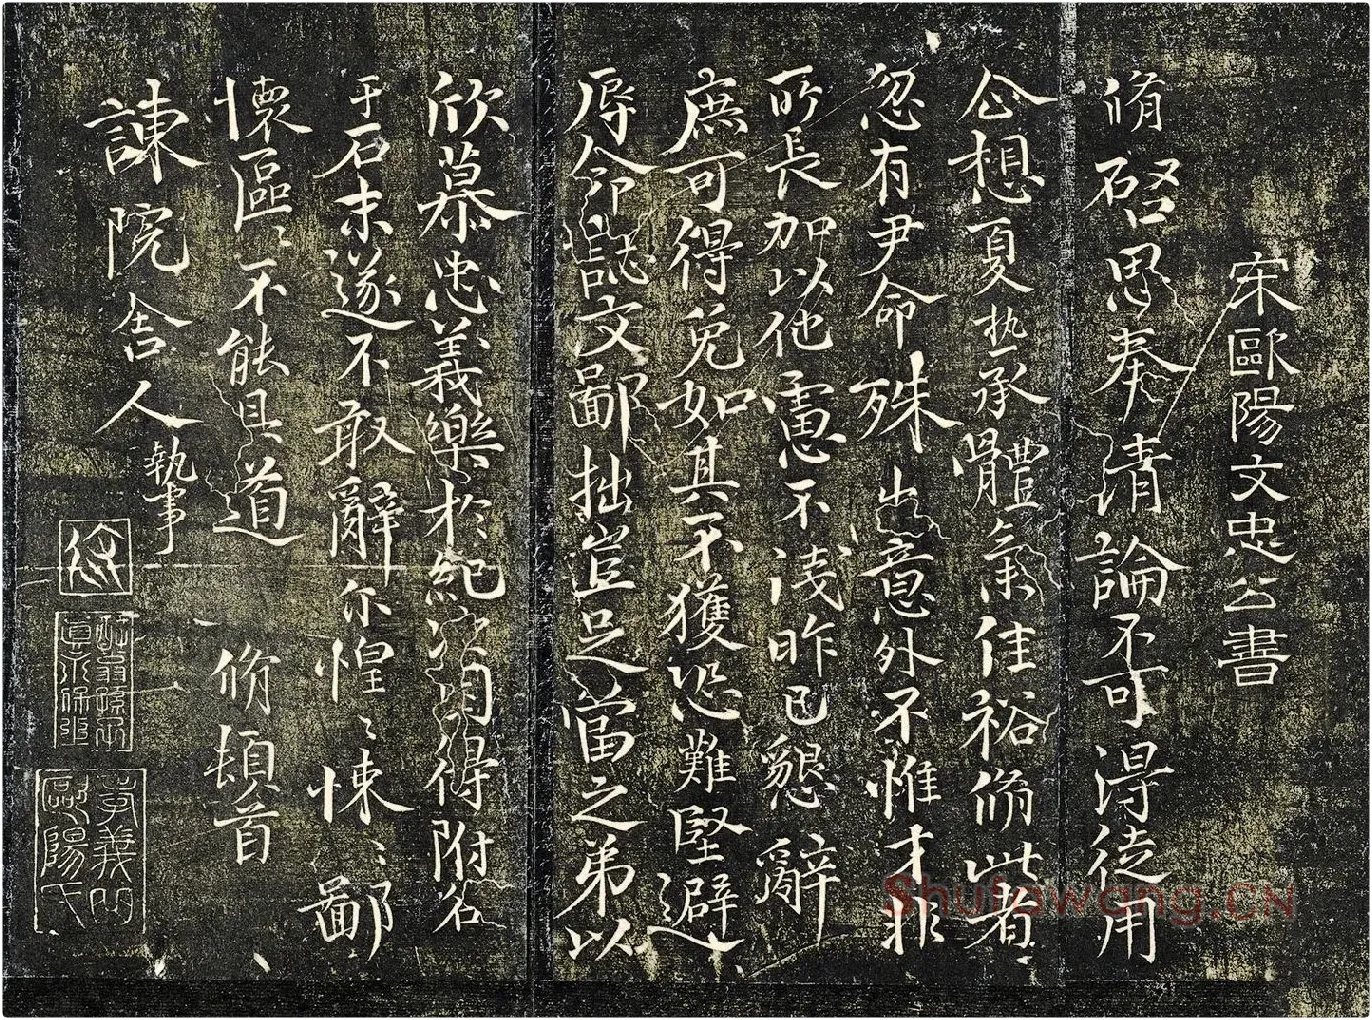 宋歐陽文忠公書
脩啓思奉清論不可得徒用
企想夏熱承體氣佳裕脩此者
忽有尹命殊出意外不惟才非
所長加以他慮不淺昨已懇辭
庶可得免如其不獲恐難堅避
辱命誌文鄙拙豈足當之弟以
欣慕忠義樂於紀述因得附名
于石末遂不敢辭尔惶〻悚〻鄙
懷區〻不能具道 脩頓首
諫院舍人執事
歐陽氏
Shufawang.CN